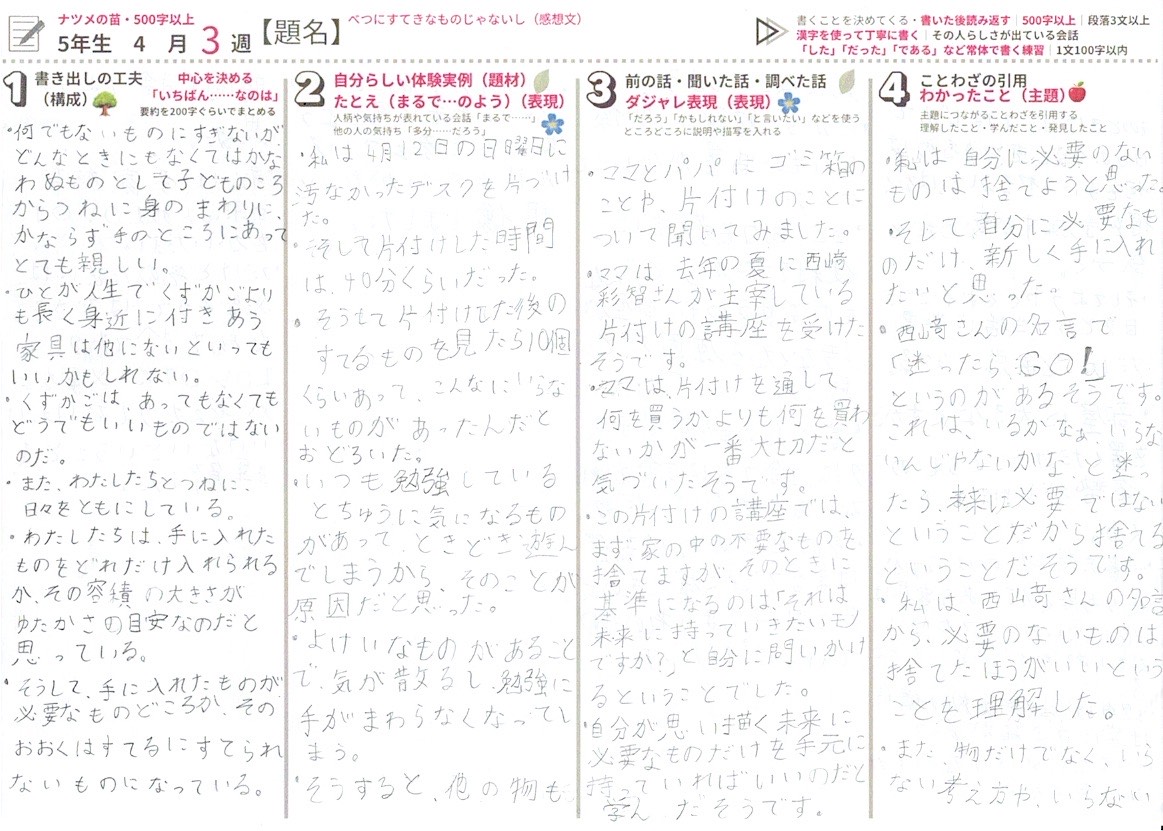 ナツメの苗・500字以上
5年生 4 月 3 週
【題名】
べつにすてきなものじゃないし（感想文）
書くことを決めてくる・書いた後読み返す｜500字以上｜段落3文以上
漢字を使って丁寧に書く｜その人らしさが出ている会話
「した」「だった」「である」など常体で書く練習｜1文100字以内
1 書き出しの工夫（構成）
中心を決める
「いちばん……なのは」
要約を200字ぐらいでまとめる
・何でもないものにすぎないが、
どんなときにもなくてはかな
わぬものとして子どものころ
からつねに身のまわりに、
かならず手のところにあって
とても親しい。
・ひとが人生でくずかごより
も長く身近に付きあう
家具は他にないといっても
いいかもしれない。
・くずかごは、あってもなくても
どうでもいいものではない
のだ。
・また、わたしたちとつねに、
日々をともにしている。
・わたしたちは、手に入れた
ものをどれだけ入れられる
か、その容積の大きさが
ゆたかさの目安なのだと
思っている。
・そうして、手に入れたものが
必要なものどころか、その
おおくはすてるにすてられ
ないものになっている。
2 自分らしい体験実例（題材）
たとえ（まるで…のよう）（表現）
人柄や気持ちが表れている会話「まるで……」
他の人の気持ち「多分……だろう」
・私は4月12日の日曜日に
汚なかったデスクを片づけ
た。
・そして片付けした時間
は、40分くらいだった。
・そうして片付けした後の
すてるものを見たら10個
くらいあって、こんなにいらな
いものがあったんだと
おどろいた。
・いつも勉強している
とちゅうに気になるもの
があって、ときどき遊ん
でしまうから、そのことが
原因だと思った。
・よけいなものがあること
で、気が散るし、勉強に
手がまわらなくなってし
まう。
・そうすると、他の物も
3 前の話・聞いた話・調べた話
ダジャレ表現（表現）
「だろう」「かもしれない」「と言いたい」などを使う
ところどころに説明や描写を入れる
・ママとパパにゴミ箱の
ことや、片付けのことに
ついて聞いてみました。
・ママは、去年の夏に西﨑
彩智さんが主宰している
片付けの講座を受けた
そうです。
・ママは、片付けを通して
何を買うかよりも何を買わ
ないかが一番大切だと
気づいたそうです。
・この片付けの講座では、
まず、家の中の不要なものを
捨てますが、そのときに
基準になるのは、「それは
未来に持っていきたいモノ
ですか?」と自分に問いかけ
るということでした。
・自分が思い描く未来に
必要なものだけを手元に
持っていればいいのだと
学んだそうです。
4 ことわざの引用
わかったこと（主題）
主題につながることわざを引用する
理解したこと・学んだこと・発見したこと
・私は自分に必要のない
ものは捨てようと思った。
・そして自分に必要なも
のだけ、新しく手に入れ
たいと思った。
・西﨑さんの名言で
「迷ったら、GO!」
というのがあるそうです。
これは、いるかなぁ、いらな
いんじゃないかな、と迷っ
たら、未来に必要ではない
ということだから捨てる
ということだそうです。
・私は、西﨑さんの名言
から、必要のないものは
捨てたほうがいいという
ことを理解した。
・また、物だけでなく、いら
ない考え方や、いらない